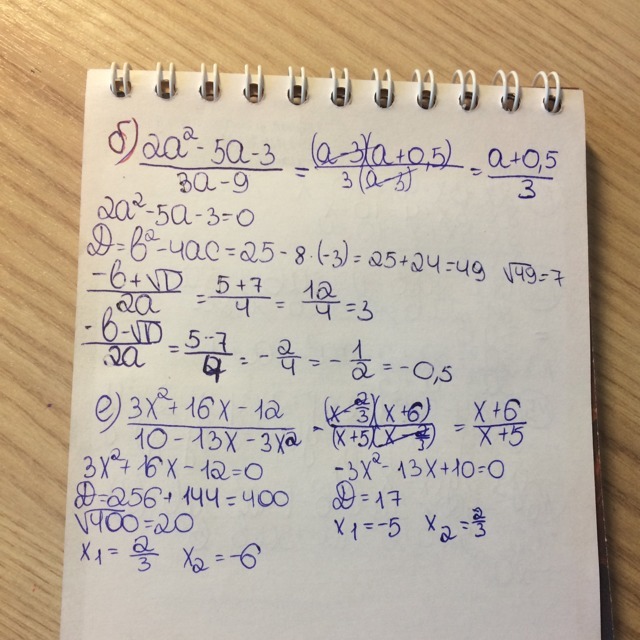 б) (2a² - 5a - 3)/(3a - 9) = ((a - 3)(a + 0,5))/(3(a - 3)) = (a + 0,5)/3
2a² - 5a - 3 = 0
D = b² - 4ac = 25 - 8·(-3) = 25 + 24 = 49 √49 = 7
(-b + √D)/2a = (5 + 7)/4 = 12/4 = 3
(-b - √D)/2a = (5 - 7)/4 = -2/4 = -1/2 = -0,5
е) (3x² + 16x - 12)/(10 - 13x - 3x²) - ((x - 2/3)(x + 6))/((x + 5)(x - 2/3)) = (x + 6)/(x + 5)
3x² + 16x - 12 = 0 -3x² - 13x + 10 = 0
D = 256 + 144 = 400 D = 17
√400 = 20 x1 = -5 x2 = 2/3
x1 = 2/3 x2 = -6